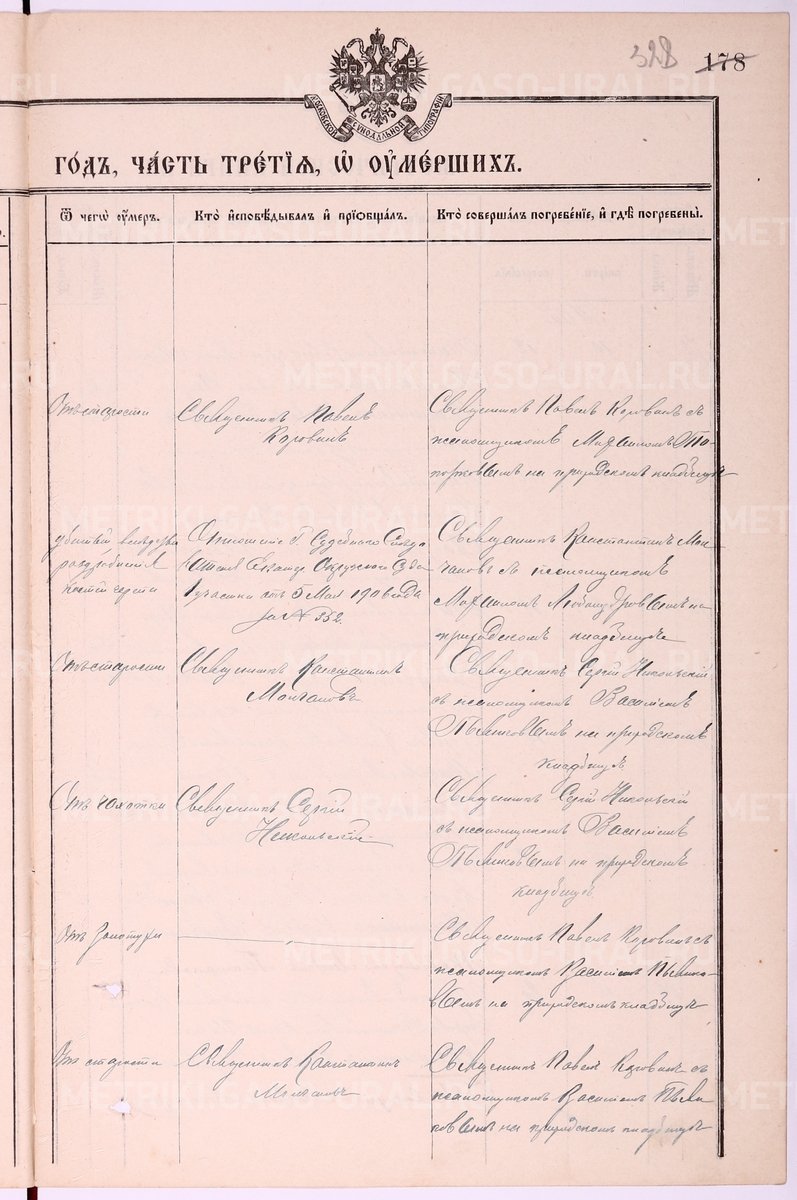 328 178
МОСКОВСКОЙ СѴНОДАЛЬНОЙ ТИПОГРАФІИ
ГО́ДЪ, ЧА́СТЬ ТРЕ́ТІѦ, Ѡ ОУ҆МЕ́РШИХЪ.
Ѿ чегѡ̀ ᲂу҆́меръ.
Кто̀ и҆сповѣ́дывалъ и҆ прїѡбща́лъ.
Кто̀ соверша́лъ погребе́нїе, и҆ гдѣ̀ погребены̀.
Отъ старости
Священникъ Павелъ
Коровинъ
Священникъ Павелъ Коровинъ съ
псаломщикомъ Михаиломъ Топорковымъ на приходскомъ кладбищѣ
раздробленія
костей черепа
Отношеніе Г. Судебнаго Слѣдо
вателя Екатер. Окружнаго Суда
1 участка отъ 5 Мая 1906 года
за № 352.
Священникъ Константинъ Мол
чановъ съ псаломщикомъ
Михаиломъ на
приходскомъ кладбищѣ
Отъ старости
Священникъ Константинъ
Молчановъ
Священникъ Сергій Никольскій
съ псаломщикомъ Василіемъ
на приходскомъ
кладбищѣ
Отъ чахотки
Священникъ Сергій
Никольскій
Священникъ Сергій Никольскій
съ псаломщикомъ Василіемъ
на приходскомъ
кладбищѣ
Отъ золотухи
Священникъ Павелъ Коровинъ съ
псаломщикомъ Василіемъ
на приходскомъ кладбищѣ
Отъ старости
Священникъ Константинъ
Молчановъ
Священникъ Павелъ Коровинъ съ
псаломщикомъ Василіемъ
на приходскомъ кладбищѣ
METRIKI.GASO-URAL.RU